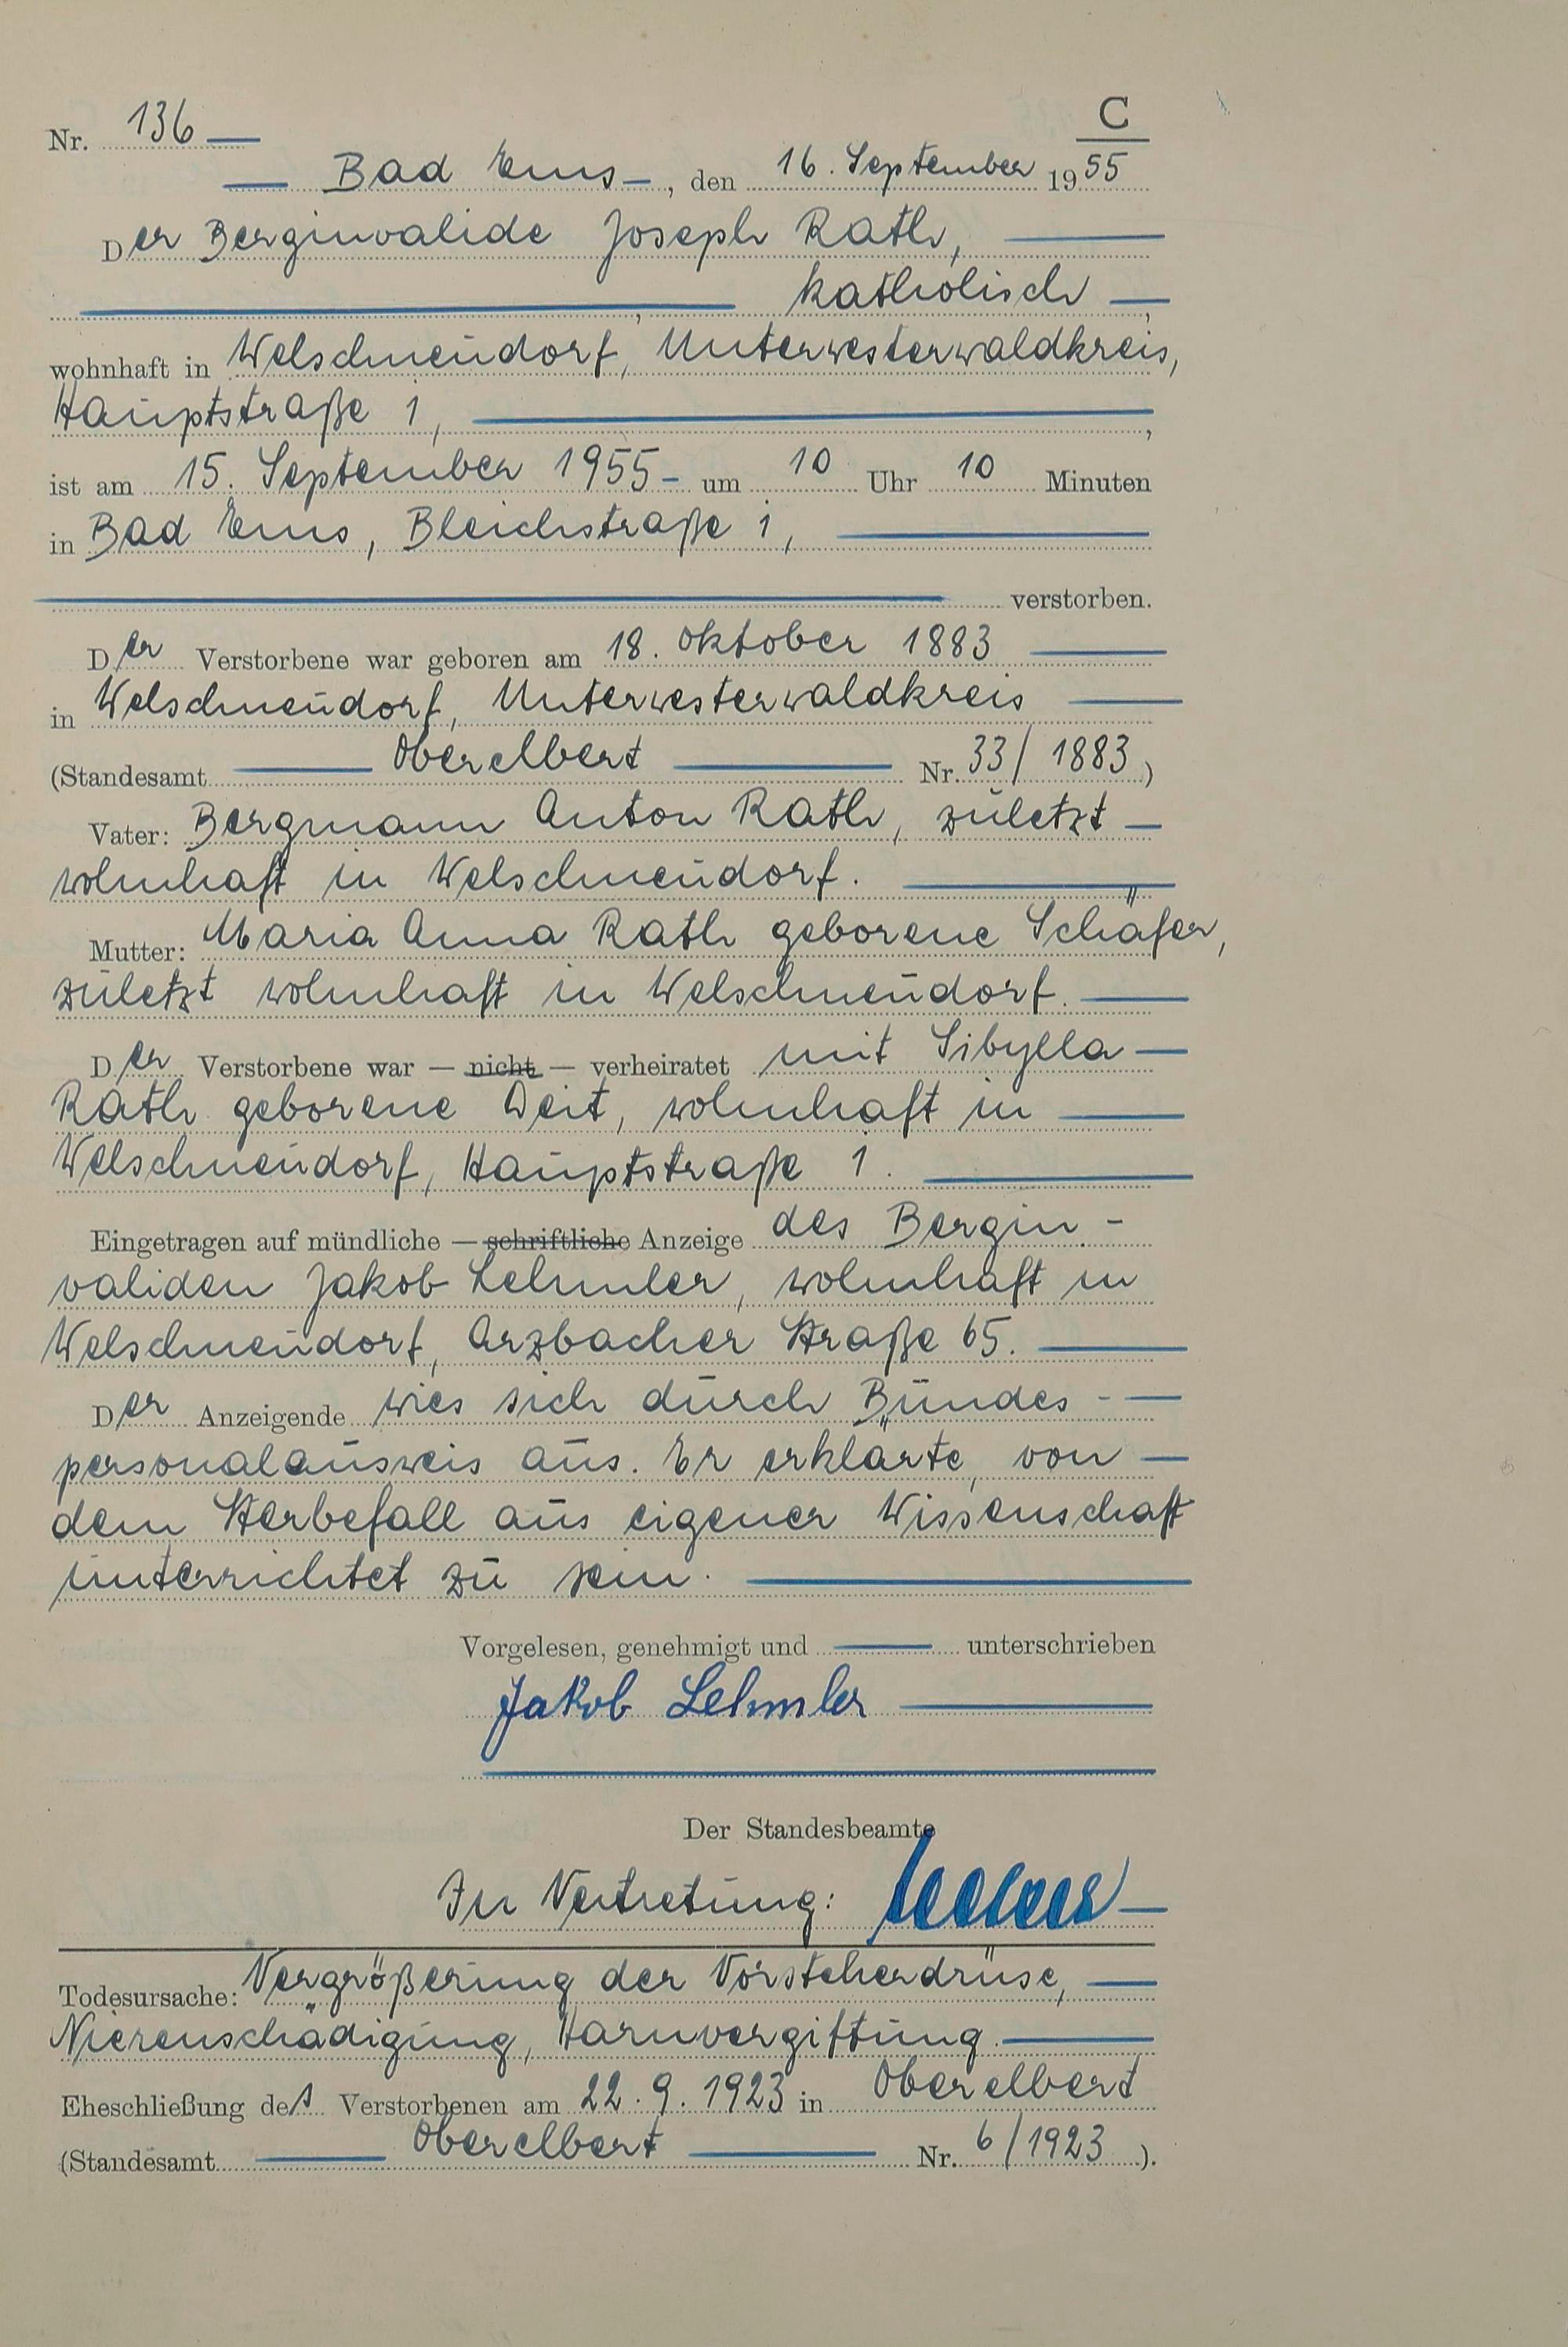 C
Nr. 136
Bad Ems, den 16. September 1955
Der Berginvalide Joseph Rath,
, katholisch,
wohnhaft in Welschneudorf, Unterwesterwaldkreis,
Hauptstraße 1,
ist am 15. September 1955 um 10 Uhr 10 Minuten
in Bad Ems, Bleichstraße 1,
verstorben.
Der Verstorbene war geboren am 18. Oktober 1883
in Welschneudorf, Unterwesterwaldkreis
(Standesamt Oberelbert Nr. 33/1883)
Vater: Bergmann Anton Rath, zuletzt
wohnhaft in Welschneudorf.
Mutter: Maria Anna Rath geborene Schäfer,
zuletzt wohnhaft in Welschneudorf.
Der Verstorbene war — nicht — verheiratet mit Sibylla
Rath geborene, wohnhaft in
Welschneudorf, Hauptstraße 1.
Eingetragen auf mündliche — schriftliche Anzeige des Bergin-
validen Jakob Lehmler, wohnhaft in
Welschneudorf, Arzbacher Straße 65.
Der Anzeigende wies sich durch Bundes-
personalausweis aus. Er erklärte, von
dem Sterbefall aus eigener Wissenschaft
unterrichtet zu sein.
Vorgelesen, genehmigt und unterschrieben
Jakob Lehmler
Der Standesbeamte
In Vertretung:
Todesursache: Vergrößerung der Vorsteherdrüse,
Nierenschädigung, Harnvergiftung.
Eheschließung des Verstorbenen am 22.9.1923 in Oberelbert
(Standesamt Oberelbert Nr. 6/1923).